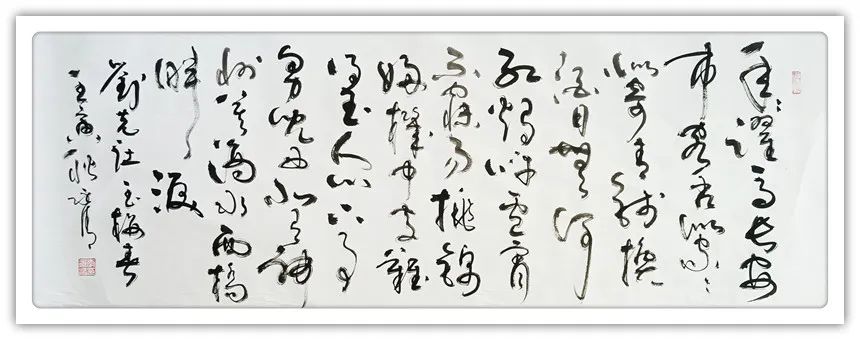 年々躍马长安
市客舍似家々
似寄青钱换
酒日無何
红烛呼卢宵
不寐易挑錦
婦機中字難
得玉人心下事
男儿西北有神
州莫滴水西橋
畔淚
劉克莊玉楼春
秋